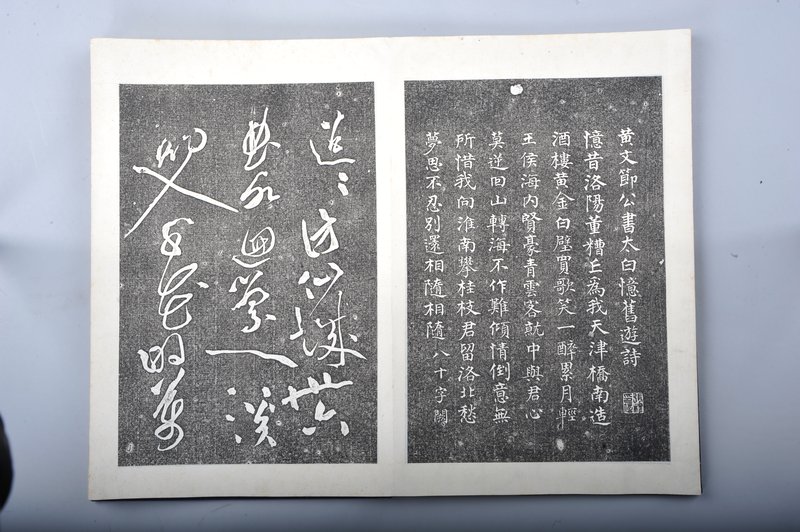 黄文節公書太白憶舊遊詩
憶昔洛陽董糟丘為我天津橋南造
酒樓黃金白璧買歌笑一醉累月輕
王侯海内賢豪青雲客就中與君心
莫逆回山轉海不作難傾情倒意無
所惜我向淮南攀桂枝君留洛北愁
夢思不忍別還相隨相隨 八十字闕
迢〻訪仙城卅六
曲水迴縈一溪
初入千花明萬